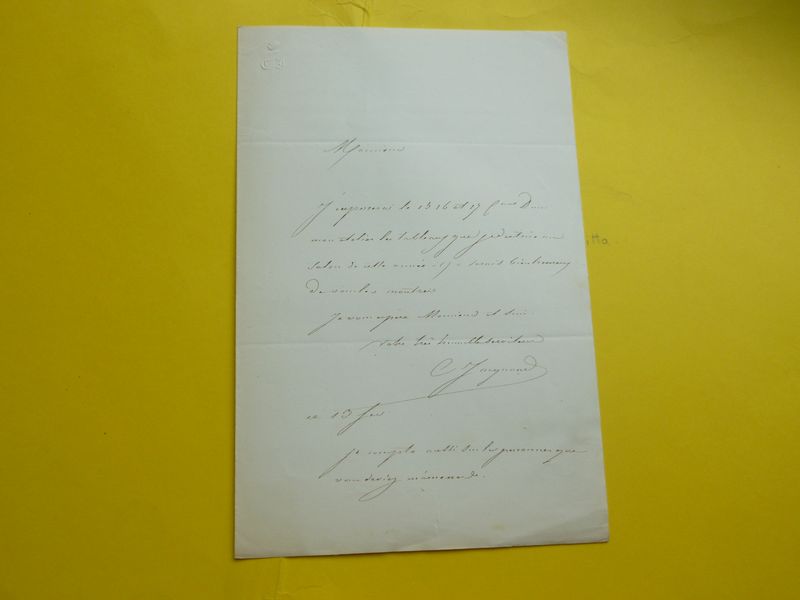 CJ
Monsieur
J'exposerai le 15 16 et 17 Dans
mon atelier les tableaux que je destine au
Salon de cette année et je serais bien heureux
de vous les montrer
Je vous espère Monsieur et suis
votre très humble serviteur
C Jacquand
ce 13 fev
je compte aussi sur les personnes que
vous deviez m'amener.
tta